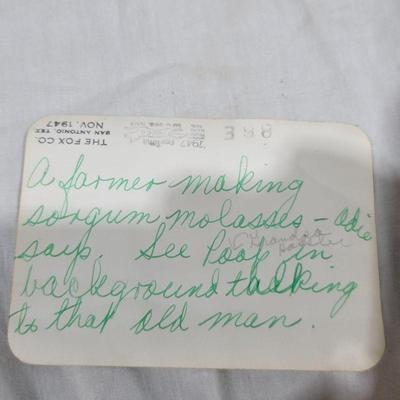 THE FOX CO.
SAN ANTONIO, TEX.
NOV. 1947
A farmer making
sorgum molasses – odie
says. See in
background talking
to that old man.